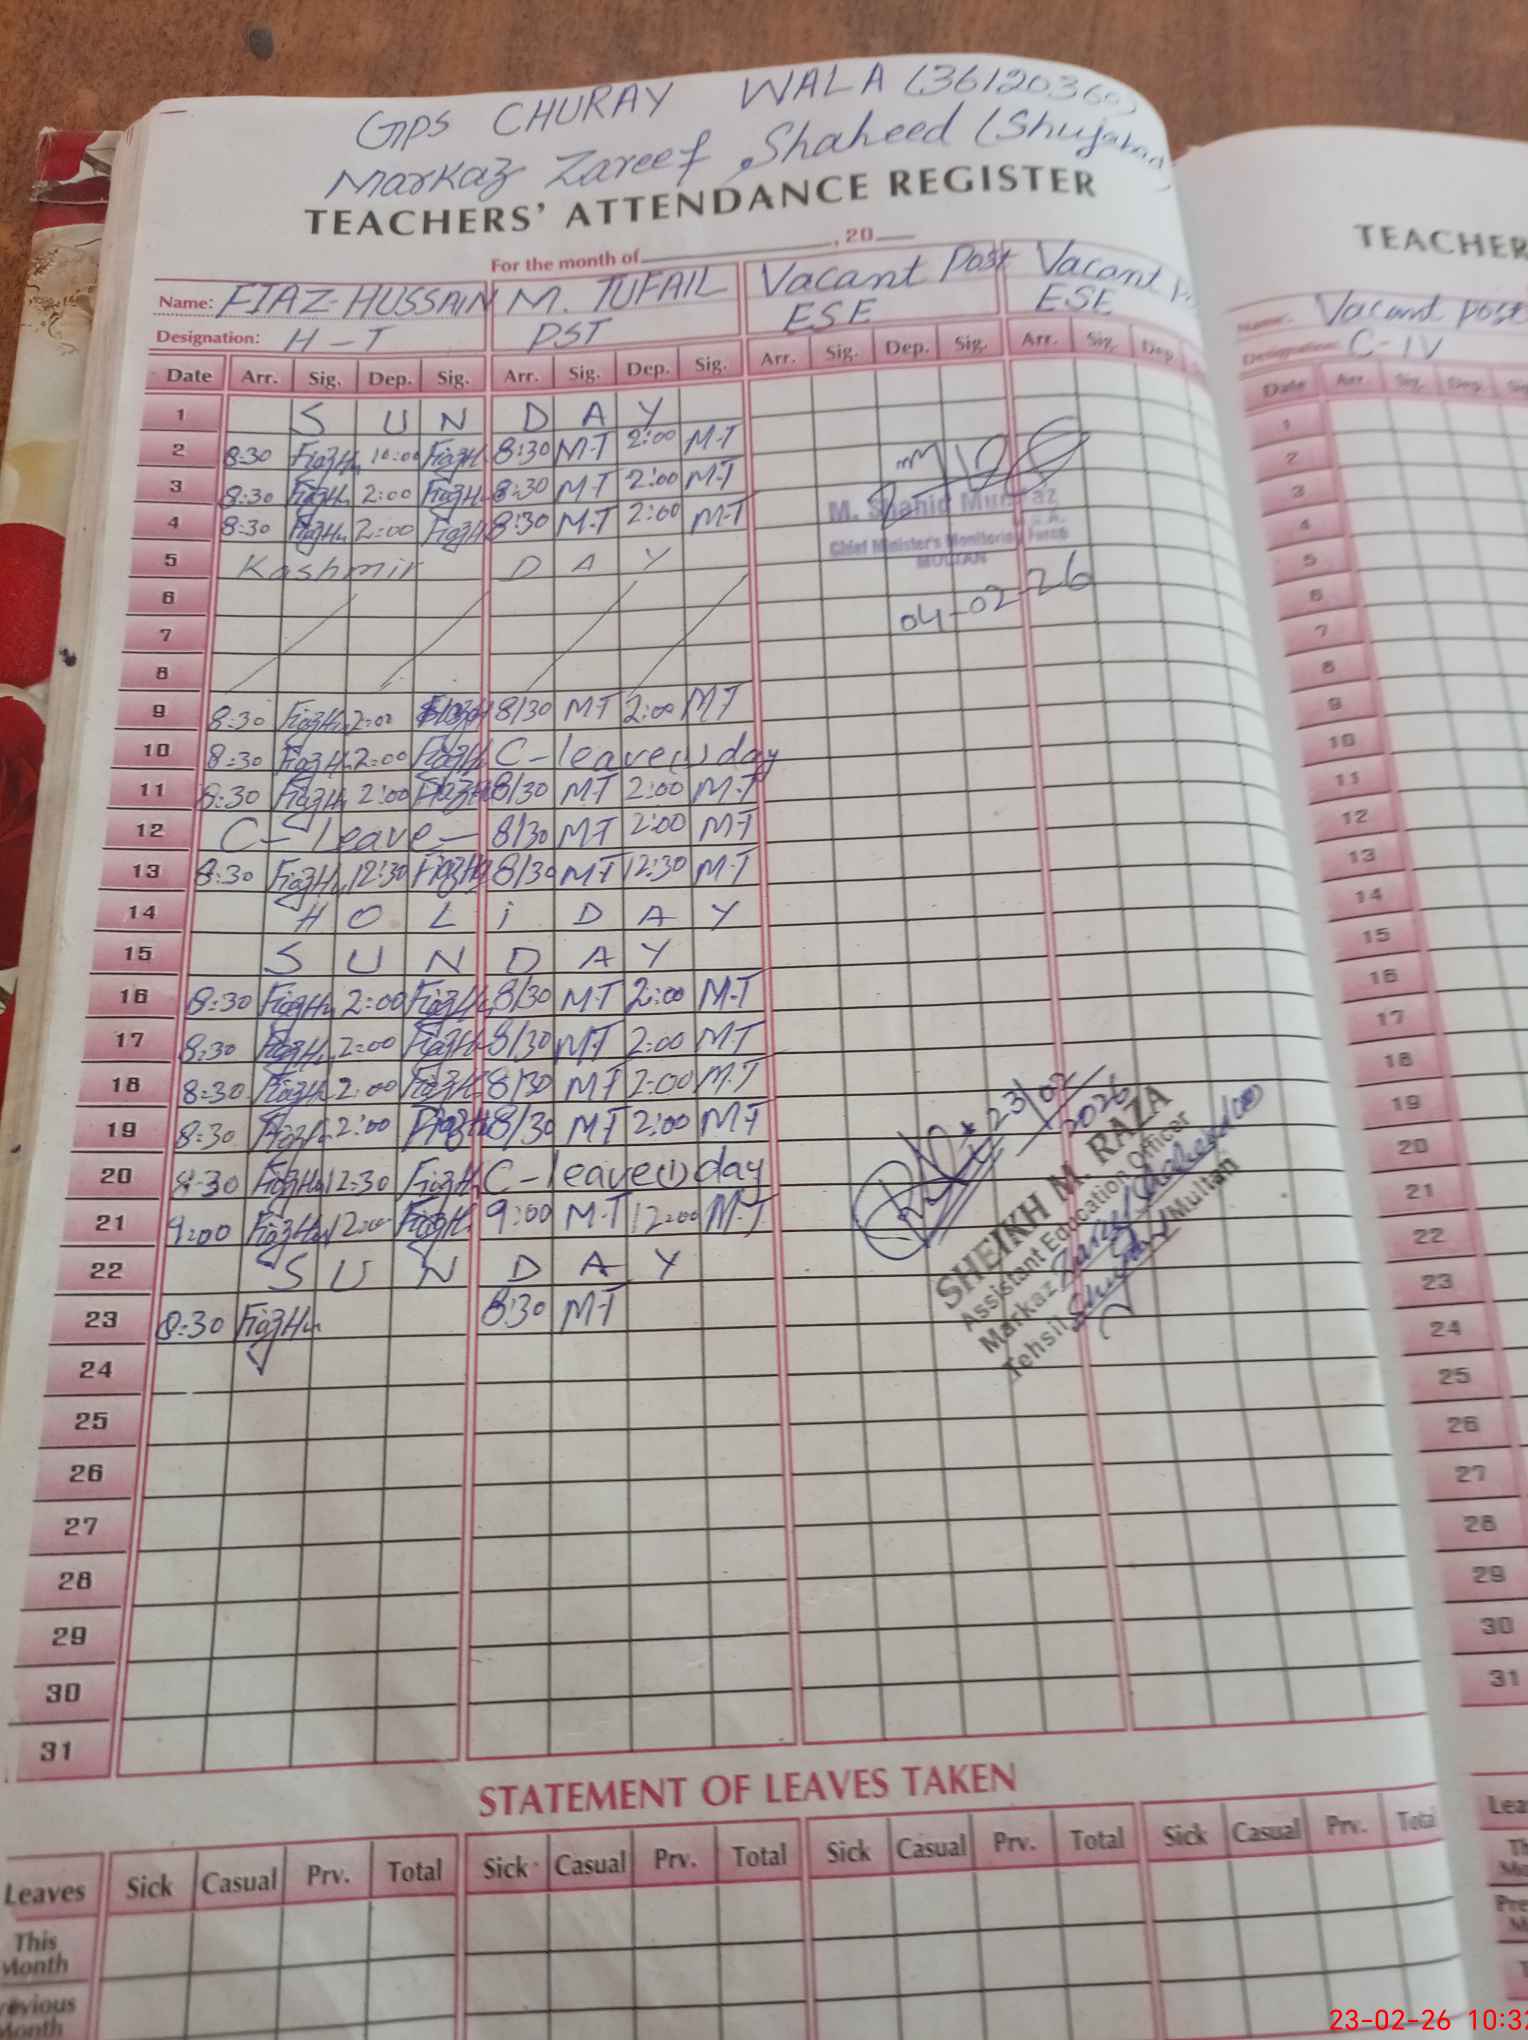 GPS CHURAY WALA (36120360)
Markaz Zareef Shaheed (Shujabad
TEACHERS' ATTENDANCE REGISTER
For the month of , 20
Name: FIAZ HUSSAIN M. TUFAIL Vacant Post Vacant
Designation: H-T PST ESE ESE
Date Arr. Sig. Dep. Sig. Arr. Sig. Dep. Sig. Arr. Sig. Dep. Sig. Arr. Sig. Dep.
1 S U N D A Y
2 8:30 FiazHu FiazH 8:30 M-T 2:00 M-T
3 8:30 FiazHu 2:00 FiazHu 8:30 M-T 2:00 M-T
4 8:30 FiazHu 2:00 FiazH 8:30 M-T 2:00 M-T
5 Kashmir D A Y
6
7
8
9 8:30 FiazHu 2:00 FiazH 8/30 M-T 2:00 M-T
10 8:30 FiazHu 2:00 FiazHu C-leave(1) day
11 8:30 FiazHu 2:00 FiazHu 8/30 M-T 2:00 M-T
12 C- Leave- 8/30 M-T 2:00 M-T
13 8:30 FiazHu 12:30 FiazHu 8/30 M-T 12:30 M-T
14 H O L i D A Y
15 S U N D A Y
16 8:30 FiazHu 2:00 FiazHu 8/30 M-T 2:00 M-T
17 8:30 FiazHu 2:00 FiazHu 8/30 M-T 2:00 M-T
18 8:30 FiazHu 2:00 FiazHu 8/30 M-T 2:00 M-T
19 8:30 FiazHu 2:00 FiazHu 8/30 M-T 2:00 M-T
20 8:30 FiazHu 12:30 FiazHu C-leave(1) day
21 9:00 FiazHu 12:00 FiazHu 9:00 M-T 12:00 M-T
22 S U N D A Y
23 8:30 FiazHu 8:30 M-T
24
25
26
27
28
29
30
31
M. Shahid Mumtaz
Chief Minister's Monitoring Force
MULTAN
04-02-26
23/02/2026
SHEIKH M. RAZA
Assistant Education Officer
Markaz Zareef Shaheed
Tehsil Shujabad Multan
STATEMENT OF LEAVES TAKEN
Leaves Sick Casual Prv. Total Sick Casual Prv. Total Sick Casual Prv. Total Sick Casual Prv. Total
This Month
Previous Month
TEACHER
Name: Vacant post
Designation: C-IV
Date Arr. Sig. Dep.
1
2
3
4
5
6
7
8
9
10
11
12
13
14
15
16
17
18
19
20
21
22
23
24
25
26
27
28
29
30
31
23-02-26 10:32